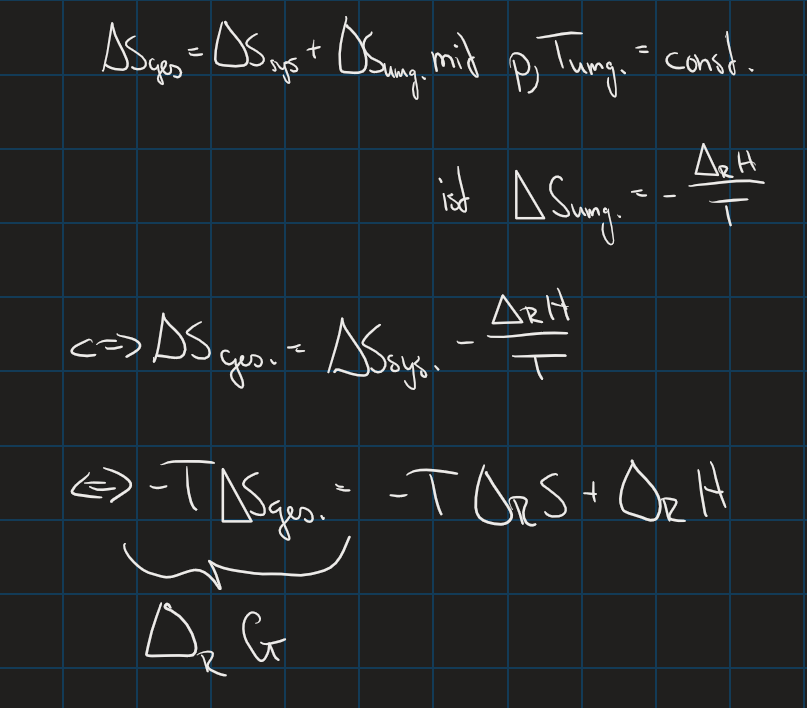 ΔS_ges = ΔS_sys + ΔS_umg. mit p, T_umg. = const.
ist ΔS_umg. = - Δ_R H / T
<=> ΔS_ges. = ΔS_sys. - Δ_R H / T
<=> -TΔS_ges. = -T Δ_R S + Δ_R H
Δ_R G